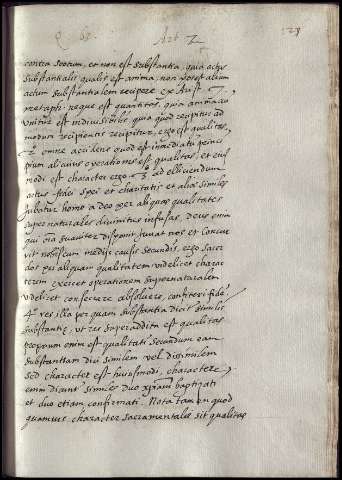 Q 63 Art 2 123
contra Scotum, et non est substantia, quia actus
substantialis qualis est anima, non potest alium
actum substantialem recipere ex Arist. 7
metaph. neque est quantitas, quia anima cui
unitur est indivisibilis, quia quod recipitur ad
modum recipientis recipitur, ergo est qualitas,
2º omne accidens quod est immediatū princi
pium alicuius operationis est qualitas, et eius
modi est character ergo. 3º ad eliciendum
actus fidei spei et charitatis et alias similes
iubatur homo a deo per aliquas qualitates
supernaturales divinitus infusas, deus enim
qui oīa suaviter disponit juvat nos et concur
rit nobiscum medijs causis secundis, ergo sacer
dos per aliquam qualitatem videlicet charac
terem exercet operationem supernaturalem
videlicet conficere absolvere, confiteri fidē
4º res illa per quam substantia dicit similis
substantie, ut res superaddita est qualitas
proprium enim est qualitati secundum eam
substantiam dici similem vel dissimilem
sed character est huiusmodi, charactere
enim dicunt similes duo xpiani baptizati
et duo etiam confirmati. Nota tamen quod
quamvis character sacramentalis sit qualitas